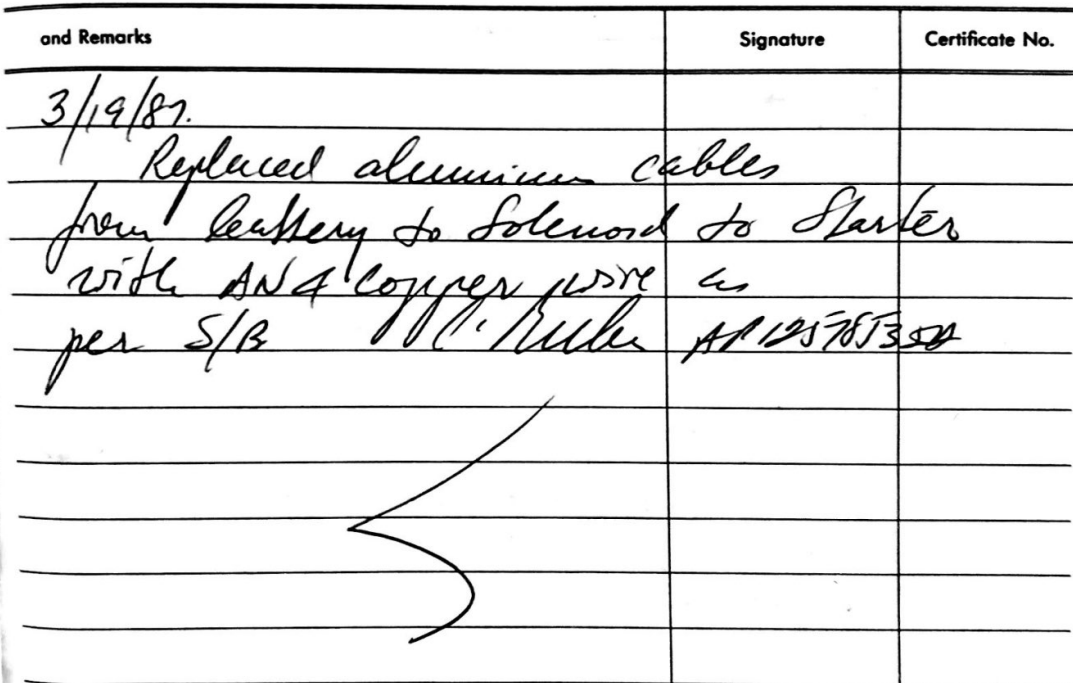 and Remarks Signature Certificate No.
3/19/87.
Replaced aluminum cables
from battery to Solenoid to Starter
with AN4 copper wire as
per S/B